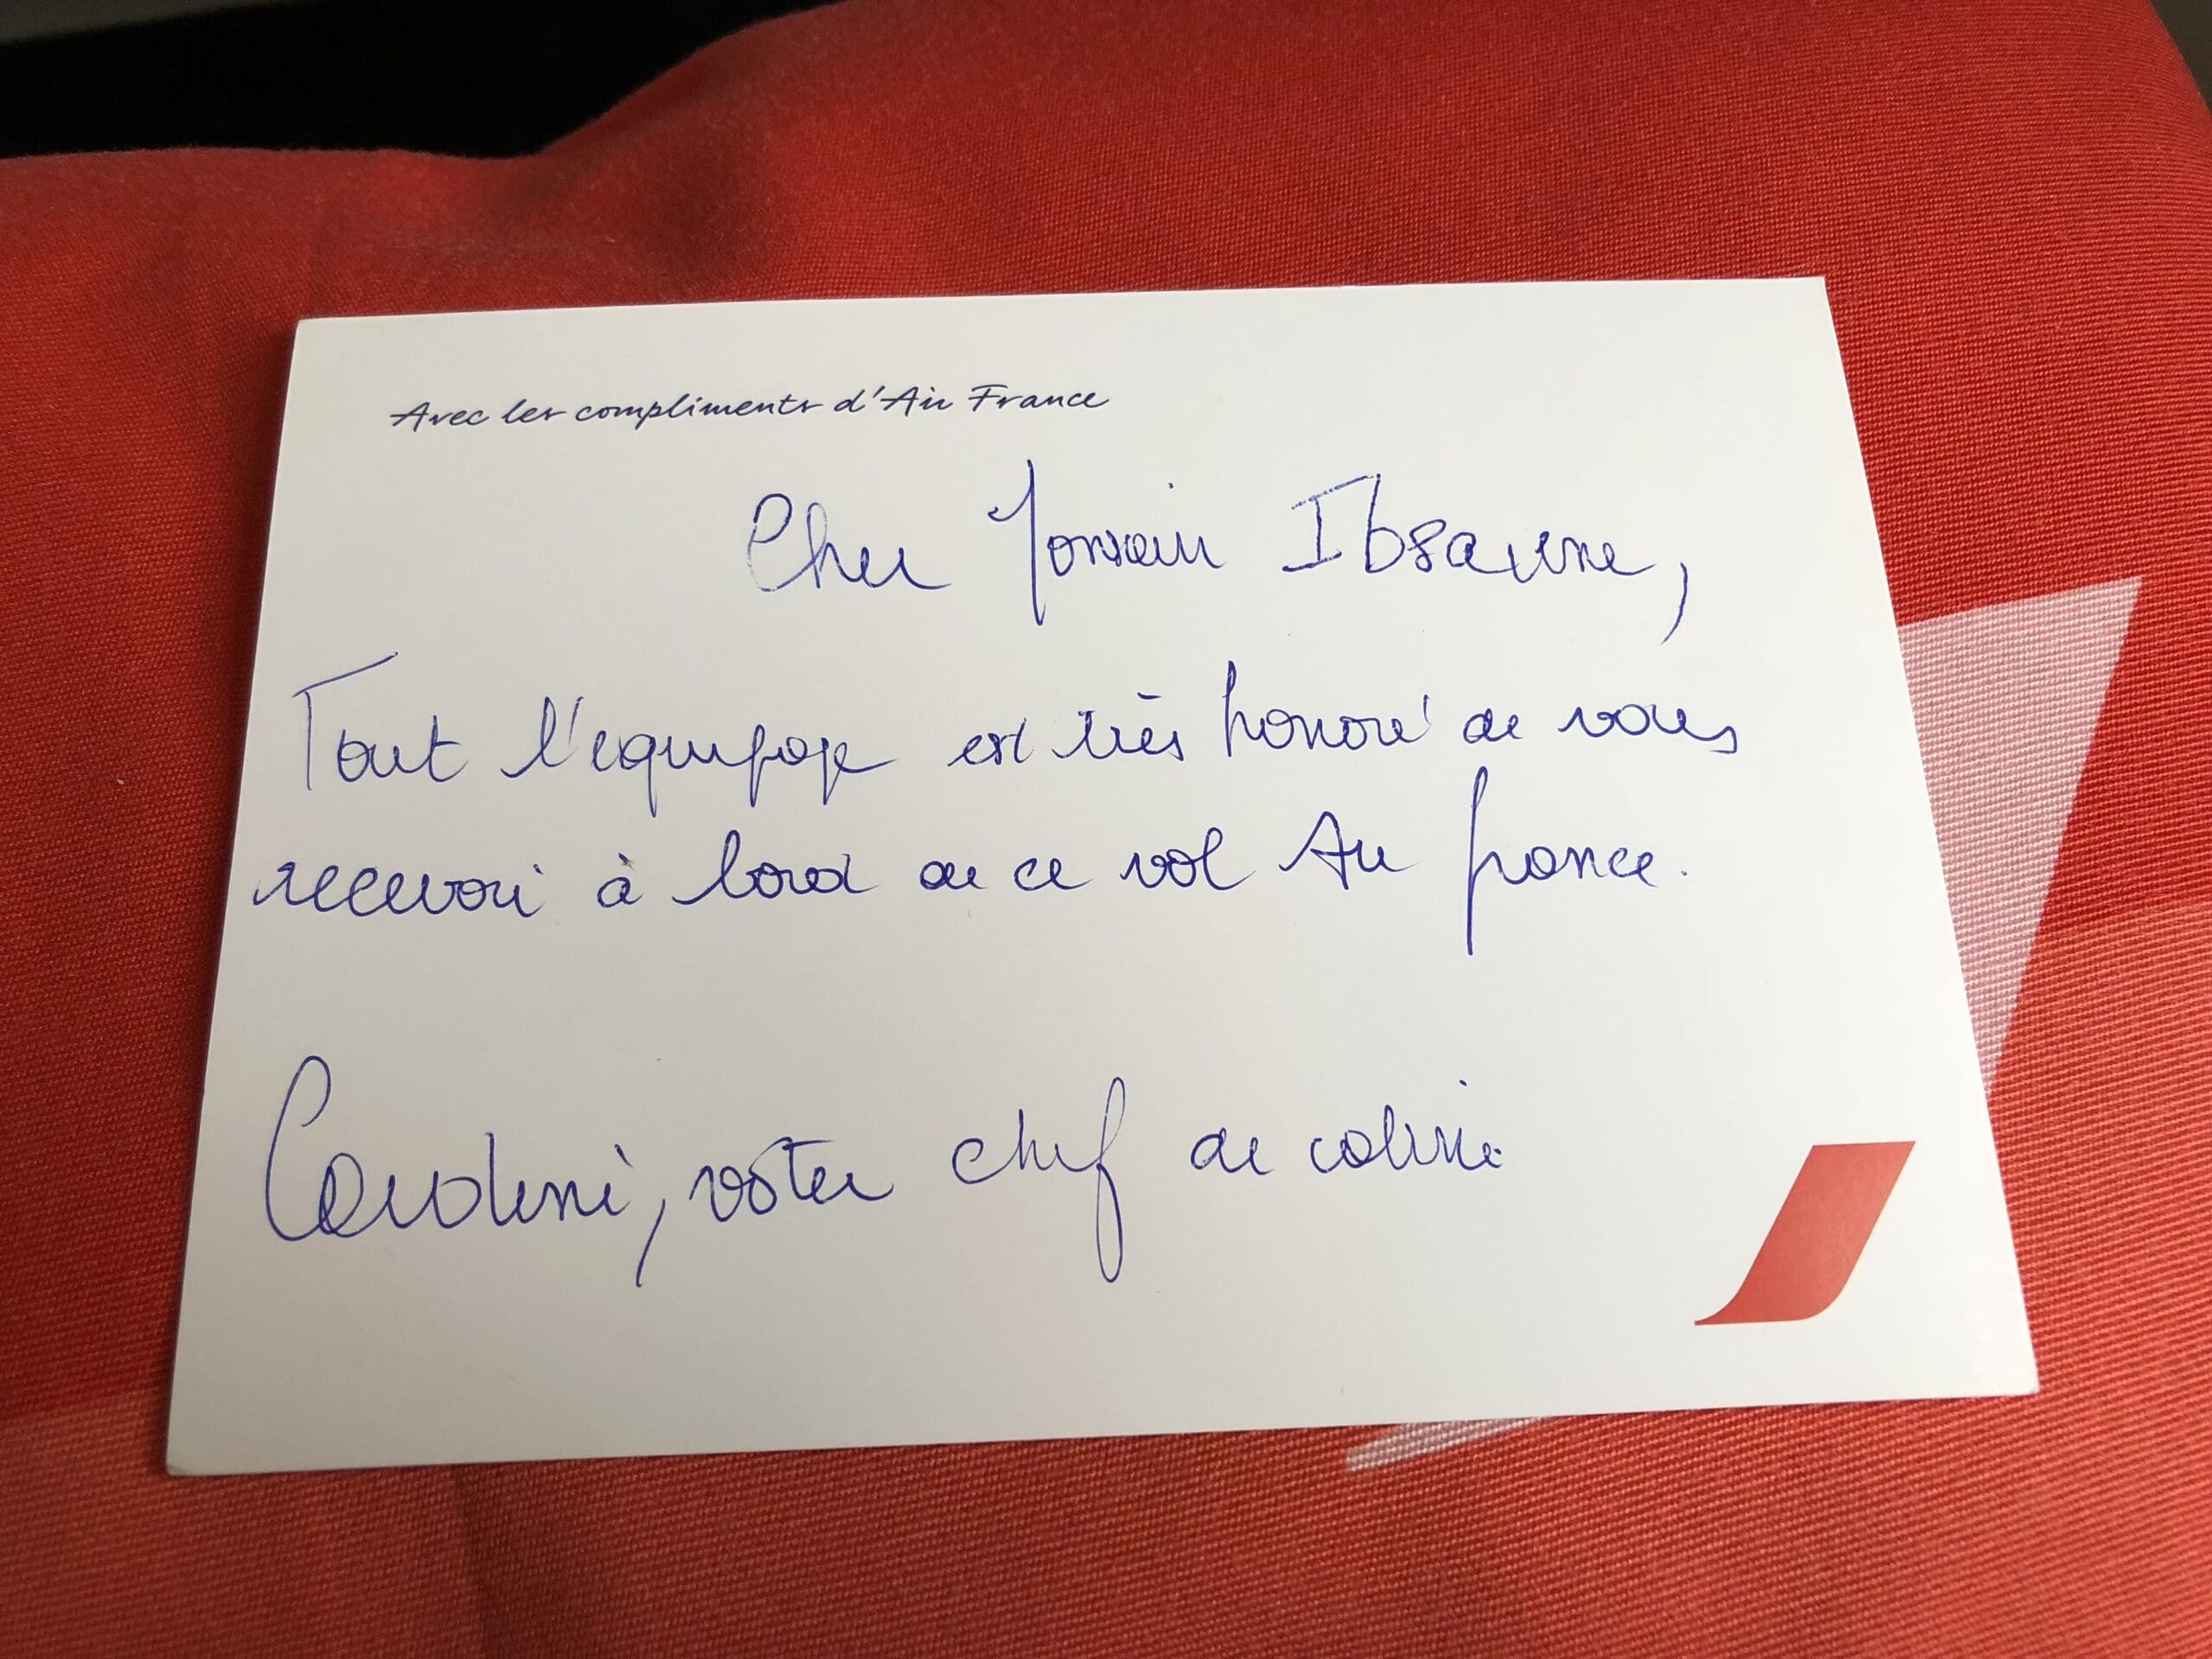 Avec les compliments d'Air France
Cher
Tout l'equipage est très honoré de vous
recevoir à bord de ce vol Air France.
votre chef de cabine